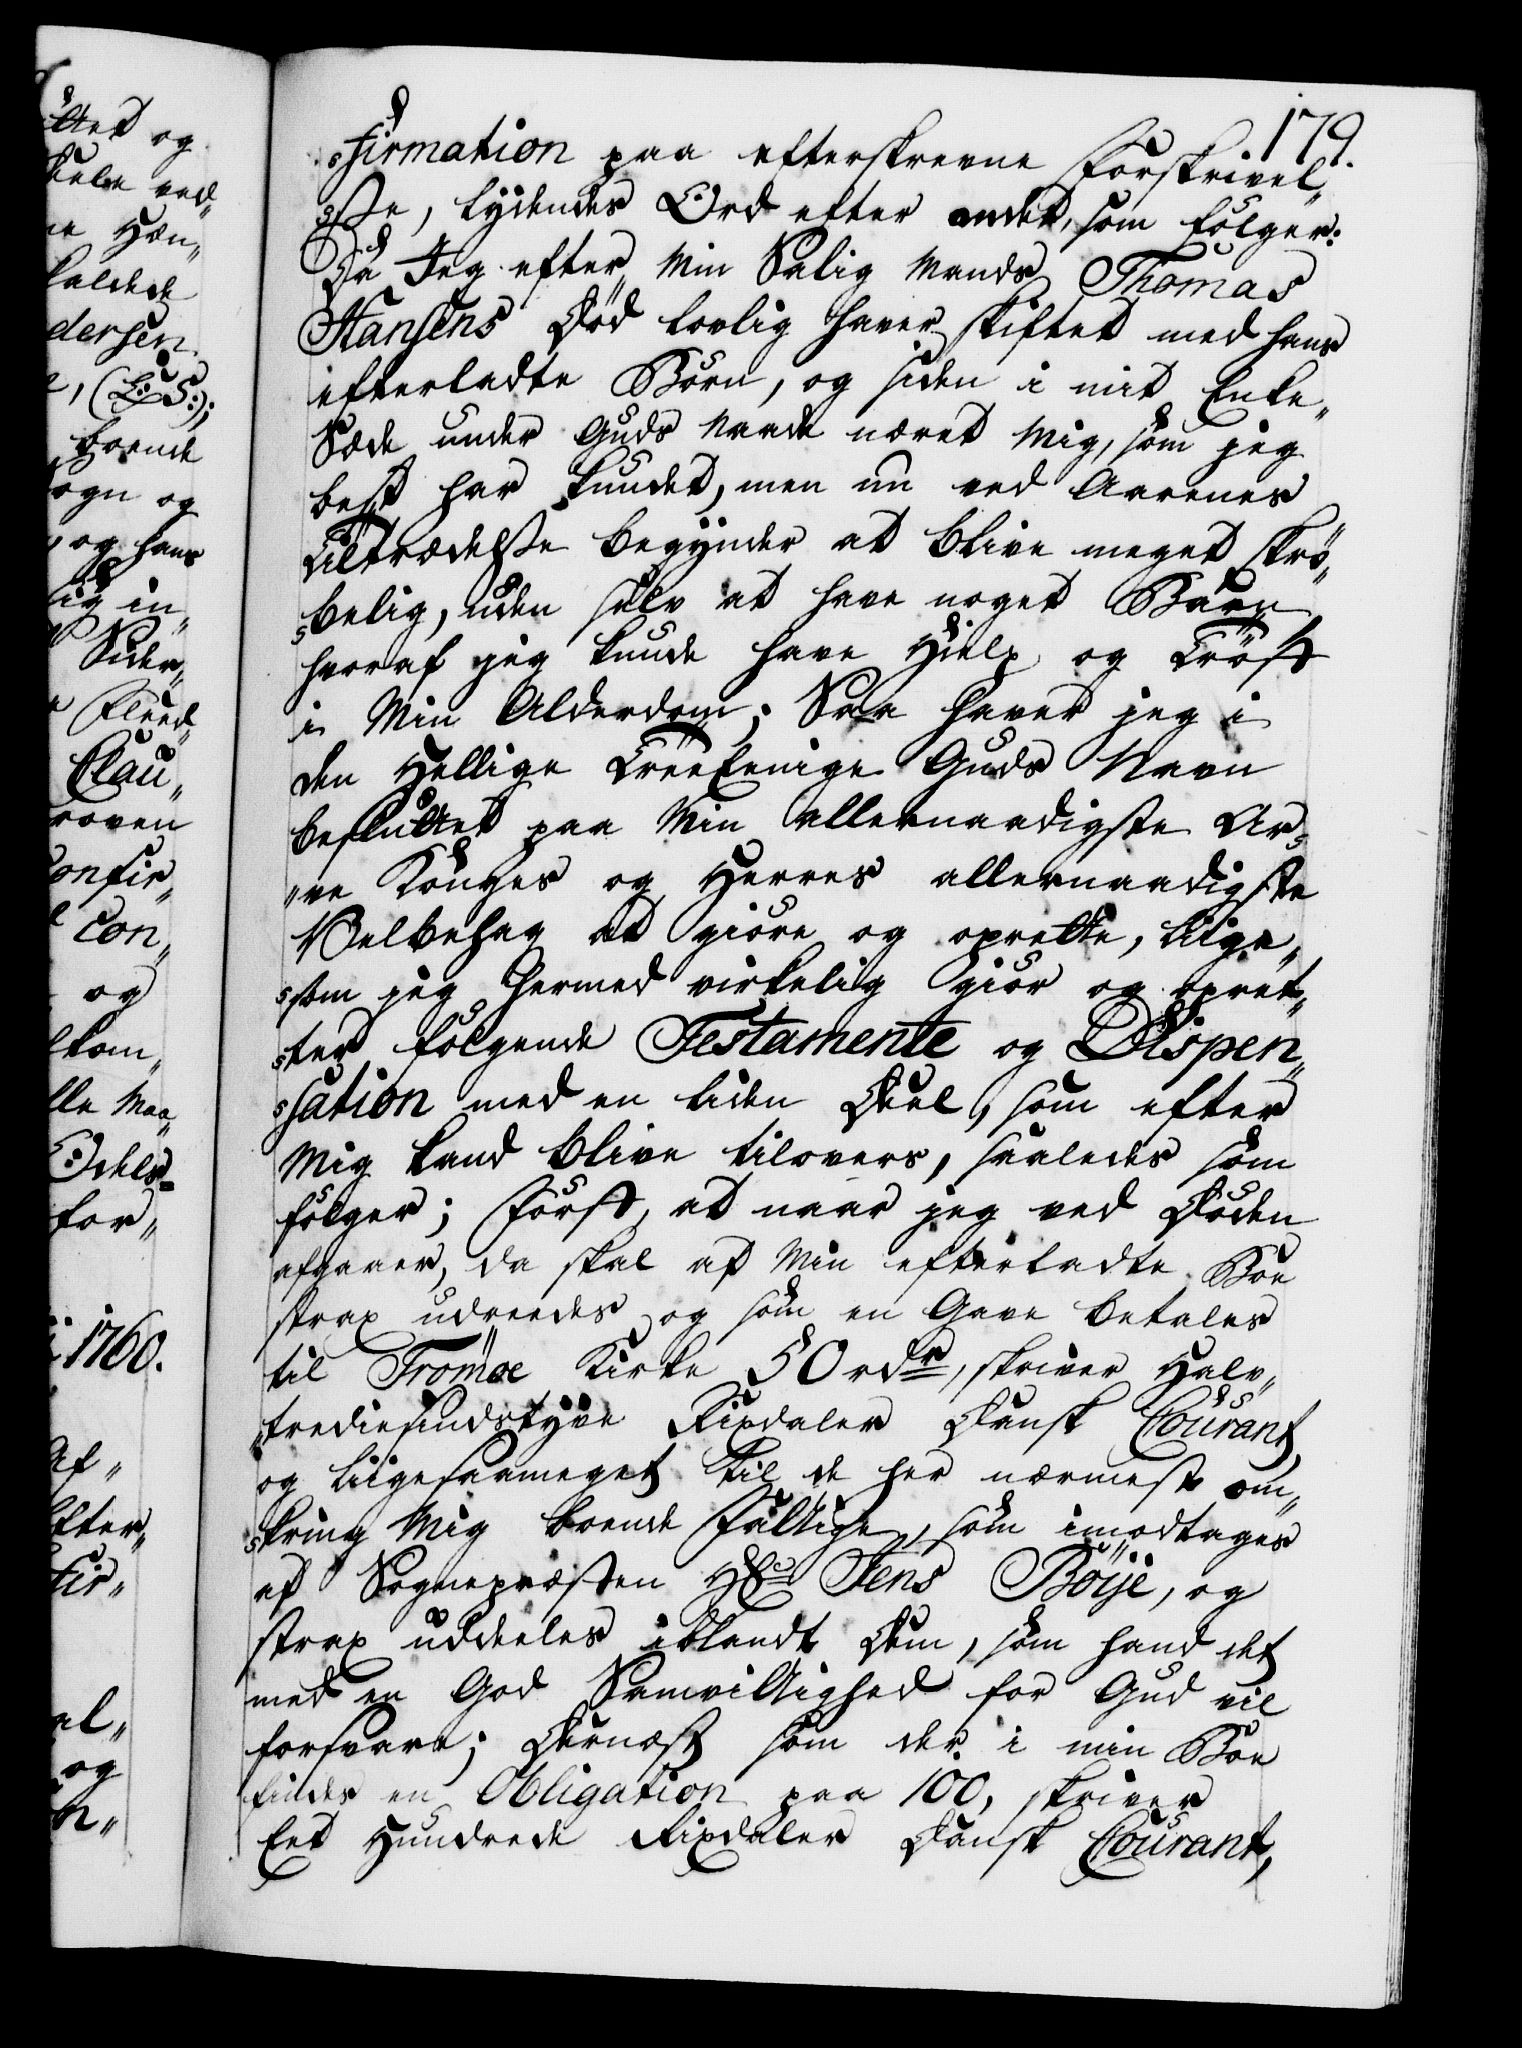 179.
firmation paa efterskrevne Forskrivel„
„sse, lydendes Ord efter andet, som følger:
Da Jeg efter Min Salig Mands Thomas
Hansens Død lovlig haver skiftet med hans
efterladte Børn, og siden i mit Enke„
Sæde under Guds Naade næret Mig, som jeg
best har kundet, men nu ved Aarenes
Tiltrædelsse begynder at blive meget skrø„
„belig, uden selv at have noget Barn
hvoraf jeg kunde have Hielp og Trøst
i Min Alderdom; Saa haver jeg i
den Hellige Treeenige Guds Navn
besluttet paa Min allernaadigste Ar„
„ve Konges og Herres allernaadigste
Velbehag at giøre og oprette, liige„
„som jeg hermed virkelig giør og opret„
„ter følgende Testamente og Dispen„
„sation med en liden Deel, som efter
Mig kand blive tilovers, saaledes som
følger; Først, at naar jeg ved Døden
afgaaer, da skal af Min efterladte Boe
strax udreedes og som en Gave betales
til Tromøe Kirke 50 rdr, skriver Halv„
„trediesindstyve Rixdaler Dansk Courant,
og liigesaameget til de her nærmest om„
„kring Mig boende Fattige, som imodtages
af Sognepræsten Hr Jens Böije, og
strax uddeeles iblandt Dem, som hand det
med en God Samvittighed for Gud vil
forsvare; Dernæst som der i min Boe
findes en Obligation paa 100, skriver
Eet Hundrede Rixdaler Dansk Courant,